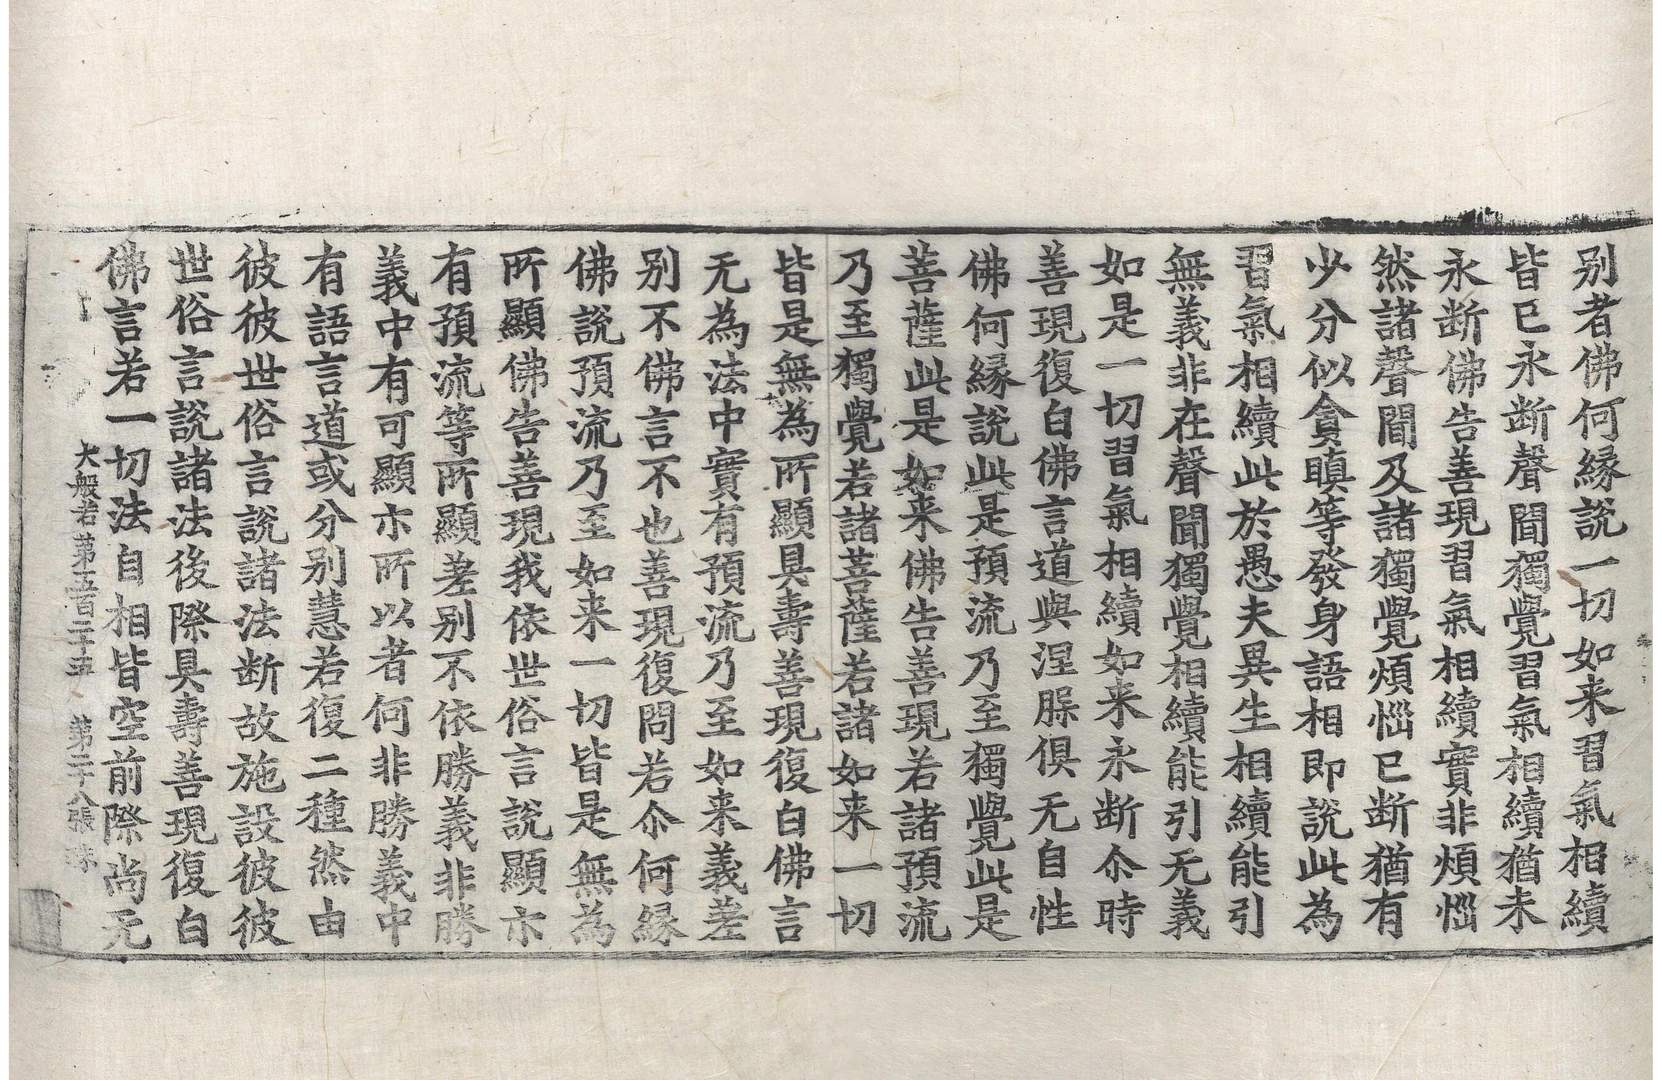 别者佛何縁說一切如来習氣相續
皆已永断聲聞獨覺習氣相續猶未
永断佛告善現習氣相續實非煩惱
然諸聲聞及諸獨覺煩惱已断猶有
少分似貪瞋等發身語相即說此為
習氣相續此於愚夫異生相續能引
無義非在聲聞獨覺相續能引无義
如是一切習氣相續如来永断尒時
善現復白佛言道與涅槃俱无自性
佛何縁說此是預流乃至獨覺此是
菩薩此是如来佛告善現若諸預流
乃至獨覺若諸菩薩若諸如来一切
皆是無為所顯具壽善現復白佛言
无為法中實有預流乃至如来義差
别不佛言不也善現復問若尒何縁
佛說預流乃至如来一切皆是無為
所顯佛告善現我依世俗言說顯示
有預流等所顯差别不依勝義非勝
義中有可顯示所以者何非勝義中
有語言道或分别慧若復二種然由
彼彼世俗言說諸法断故施設彼彼
世俗言說諸法後際具壽善現復白
佛言若一切法自相皆空前際尚无
大般若第五百二十五 第二十八張